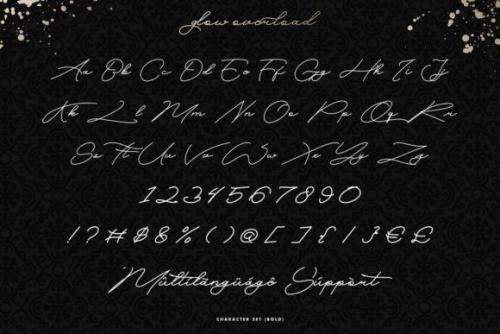 glow overload
Aa Bb Cc Dd Ee Ff Gg Hh Ii Jj
Kk Ll Mm Nn Oo Pp Qq Rr
Ss Tt Uu Vv Ww Xx Yy Zz
1234567890
!?#$&%()@[]{/}€£
Mültilängüágè Súppòrt
CHARACTER SET (BOLD)